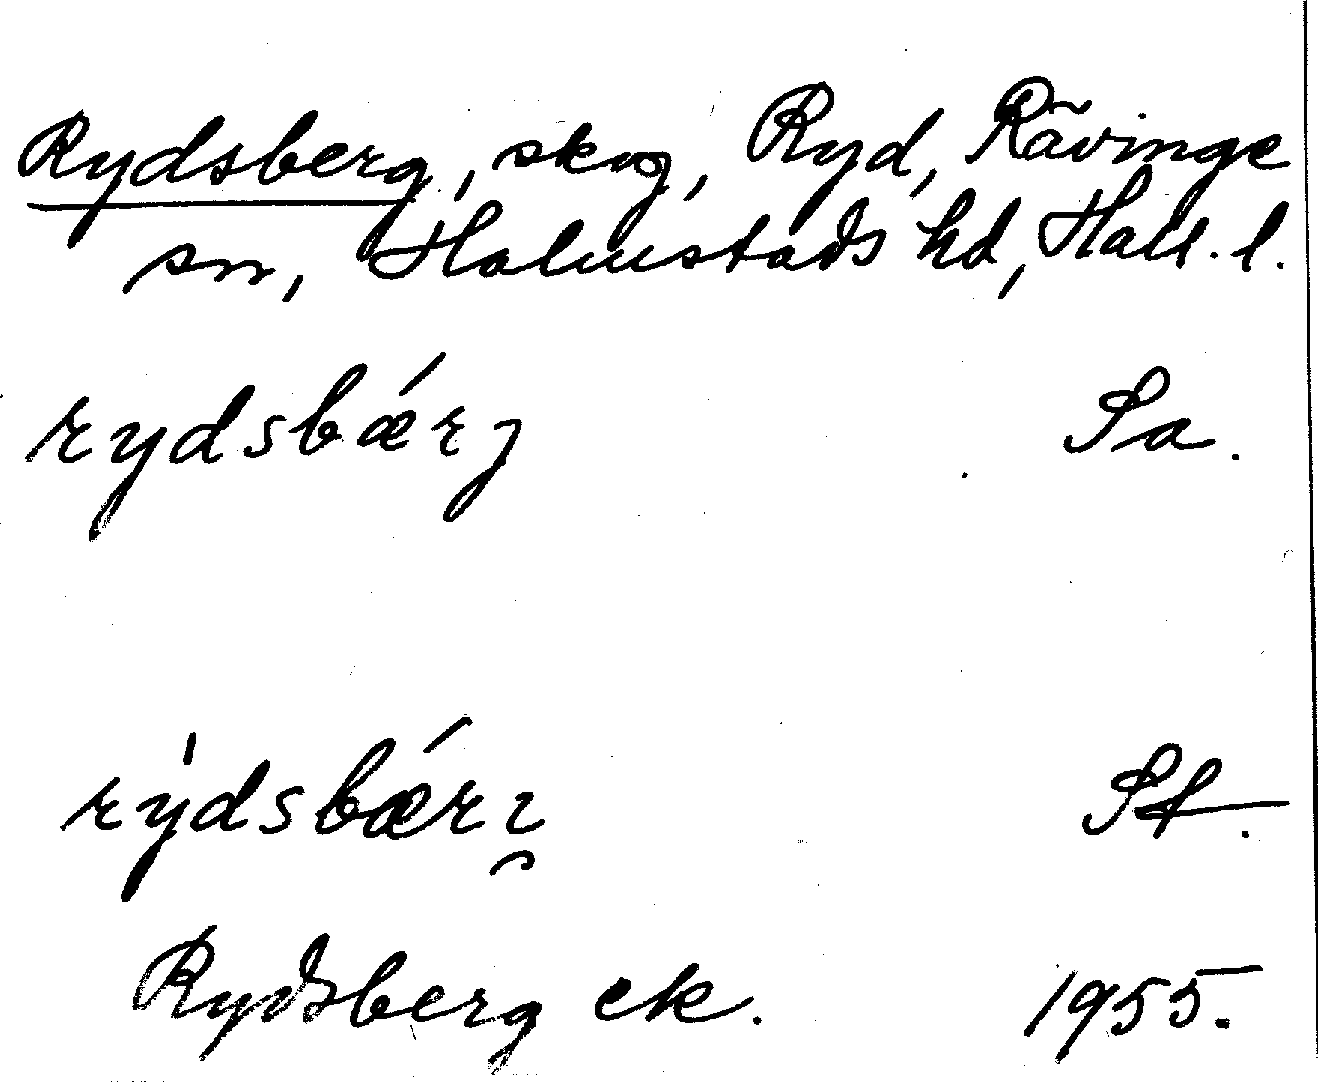 Rydsberg, skog, Ryd, Rävinge
sn, Halmstads hd, Hall. l.
rydsbǽrj Sa.
rýdsbǽrı̯ St.
Rydsberg ek. 1955.